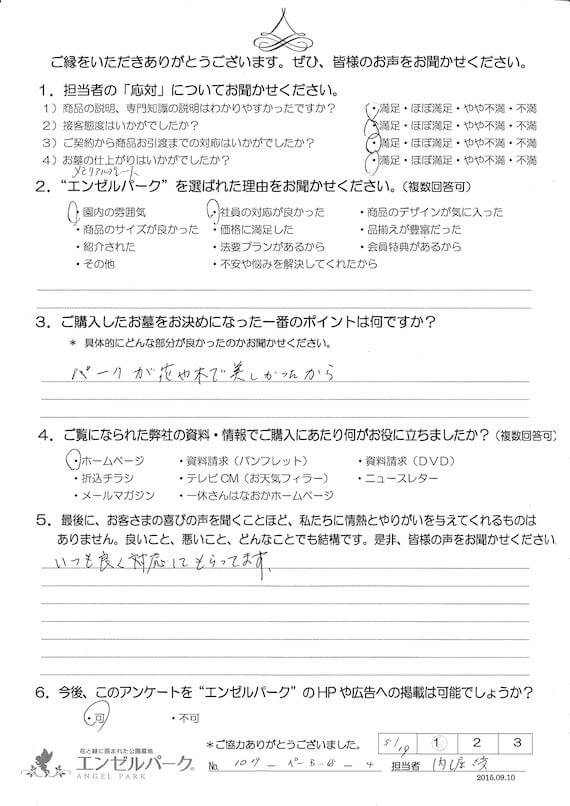 ご縁をいただきありがとうございます。ぜひ、皆様のお声をお聞かせください。
1．担当者の「応対」についてお聞かせください。
1）商品の説明、専門知識の説明はわかりやすかったですか？ ・満足・ほぼ満足・やや不満・不満
2）接客態度はいかがでしたか？ ・満足・ほぼ満足・やや不満・不満
3）ご契約から商品お引渡までの対応はいかがでしたか？ ・満足・ほぼ満足・やや不満・不満
4）お墓の仕上がりはいかがでしたか？ ・満足・ほぼ満足・やや不満・不満
2．“エンゼルパーク”を選ばれた理由をお聞かせください。（複数回答可）
・園内の雰囲気 ・社員の対応が良かった ・商品のデザインが気に入った
・商品のサイズが良かった ・価格に満足した ・品揃えが豊富だった
・紹介された ・法要プランがあるから ・会員特典があるから
・その他 ・不安や悩みを解決してくれたから
3．ご購入したお墓をお決めになった一番のポイントは何ですか？
＊ 具体的にどんな部分が良かったのかお聞かせください。
パークが花や木で美しかったから
4．ご覧になられた弊社の資料・情報でご購入にあたり何がお役に立ちましたか？（複数回答可）
・ホームページ ・資料請求（パンフレット） ・資料請求（DVD）
・折込チラシ ・テレビCM（お天気フィラー） ・ニュースレター
・メールマガジン ・一休さんはなおかホームページ
5．最後に、お客さまの喜びの声を聞くことほど、私たちに情熱とやりがいを与えてくれるものは
ありません。良いこと、悪いこと、どんなことでも結構です。是非、皆様の声をお聞かせください。
いつも良く対応してもらってます。
6．今後、このアンケートを“エンゼルパーク”のHPや広告への掲載は可能でしょうか？
・可 ・不可
＊ご協力ありがとうございました。 5/19 1 2 3
花と緑に囲まれた公園墓地
エンゼルパーク®
ANGEL PARK
No. 107 － ペ－3－B － 4 担当者
2015.09.10